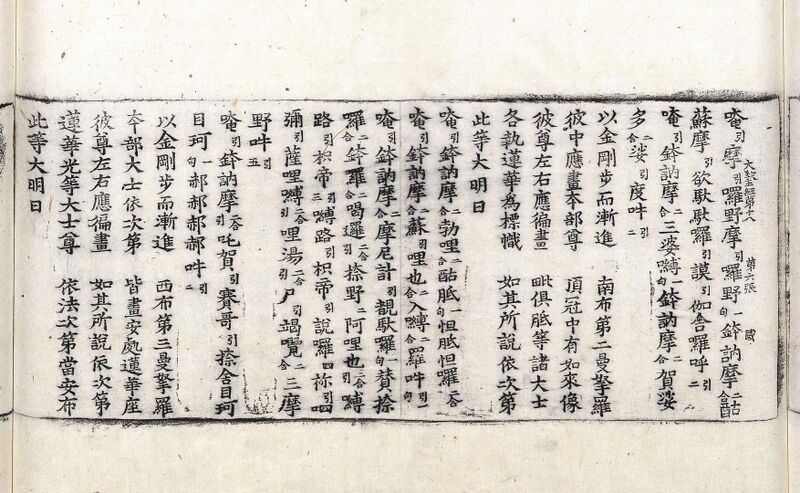 唵引摩引囉野摩引囉野一鉢訥摩二合酤
大敎王經第十八 第六張 𢧵
蘇摩引欲馱馱囉引謨引伽舍囉呼引二
唵引鉢訥摩二合三婆嚩一句鉢訥摩二合賀娑
多二合娑引度吽引二
以金剛步而漸進 南布第二曼拏羅
彼中應畫本部尊 頂冠中有如來像
彼尊左右應徧畫 毗俱胝等諸大士
各執蓮華為標幟 如其所說依次第
此等大明曰
唵引鉢訥摩二合勃哩二合酤胝一句怛胝怛囉二合
唵引鉢訥摩二合蘇引哩也二合入嚩二合羅吽引一
唵引鉢訥摩二合摩尼計引覩馱囉一句賛捺
囉二合鉢囉二合喝邏引二合捺野二阿哩也二合嚩
路引枳帝引三嚩路引枳帝引說囉四祢引呬
彌引薩哩嚩二合引哩湯二合引尸引竭嚂二合三摩
野吽五
唵引鉢訥摩二合吒賀引賽哥引捺舍目珂
目珂一句郝郝郝郝吽引二
以金剛步而漸進 西布第三曼拏羅
本部大士依次第 皆畫安處蓮華座
彼尊左右應徧畫 如其所說依次第
蓮華光等大士尊 依法次第當安布
此等大明曰